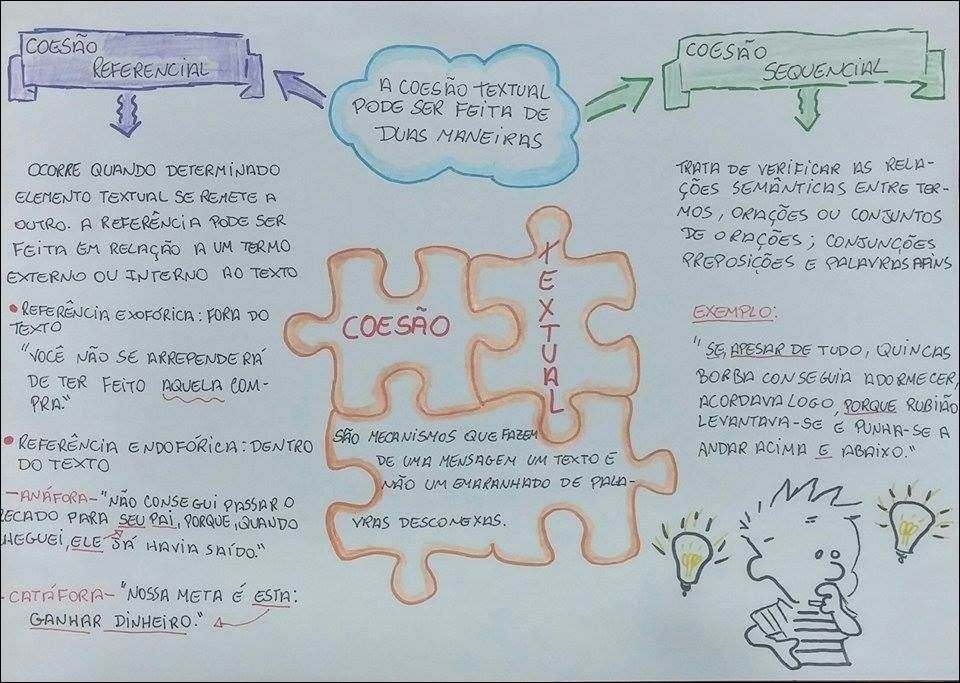 COESÃO
REFERENCIAL
OCORRE QUANDO DETERMINADO
ELEMENTO TEXTUAL SE REMETE A
OUTRO. A REFERÊNCIA PODE SER
FEITA EM RELAÇÃO A UM TERMO
EXTERNO OU INTERNO AO TEXTO
• REFERÊNCIA EXOFÓRICA: FORA DO
TEXTO
"VOCÊ NÃO SE ARREPENDERÁ
DE TER FEITO AQUELA COM-
PRA."
• REFERÊNCIA ENDOFÓRICA: DENTRO
DO TEXTO
- ANÁFORA - "NÃO CONSEGUI PASSAR O
RECADO PARA SEU PAI, PORQUE, QUANDO
HEGUEI, ELE JÁ HAVIA SAÍDO."
- CATÁFORA - "NOSSA META É ESTA:
GANHAR DINHEIRO."
A COESÃO TEXTUAL
PODE SER FEITA DE
DUAS MANEIRAS
COESÃO
TEXTUAL
SÃO MECANISMOS QUE FAZEM
DE UMA MENSAGEM UM TEXTO E
NÃO UM EMARANHADO DE PALA-
VRAS DESCONEXAS.
COESÃO
SEQUENCIAL
TRATA DE VERIFICAR AS RELA-
ÇÕES SEMÂNTICAS ENTRE TER-
MOS, ORAÇÕES OU CONJUNTOS
DE ORAÇÕES; CONJUNÇÕES
PREPOSIÇÕES E PALAVRAS AFINS
EXEMPLO:
"SE, APESAR DE TUDO, QUINCAS
BORBA CONSEGUIA ADORMECER,
ACORDAVA LOGO, PORQUE RUBIÃO
LEVANTAVA-SE E PUNHA-SE A
ANDAR ACIMA E ABAIXO."